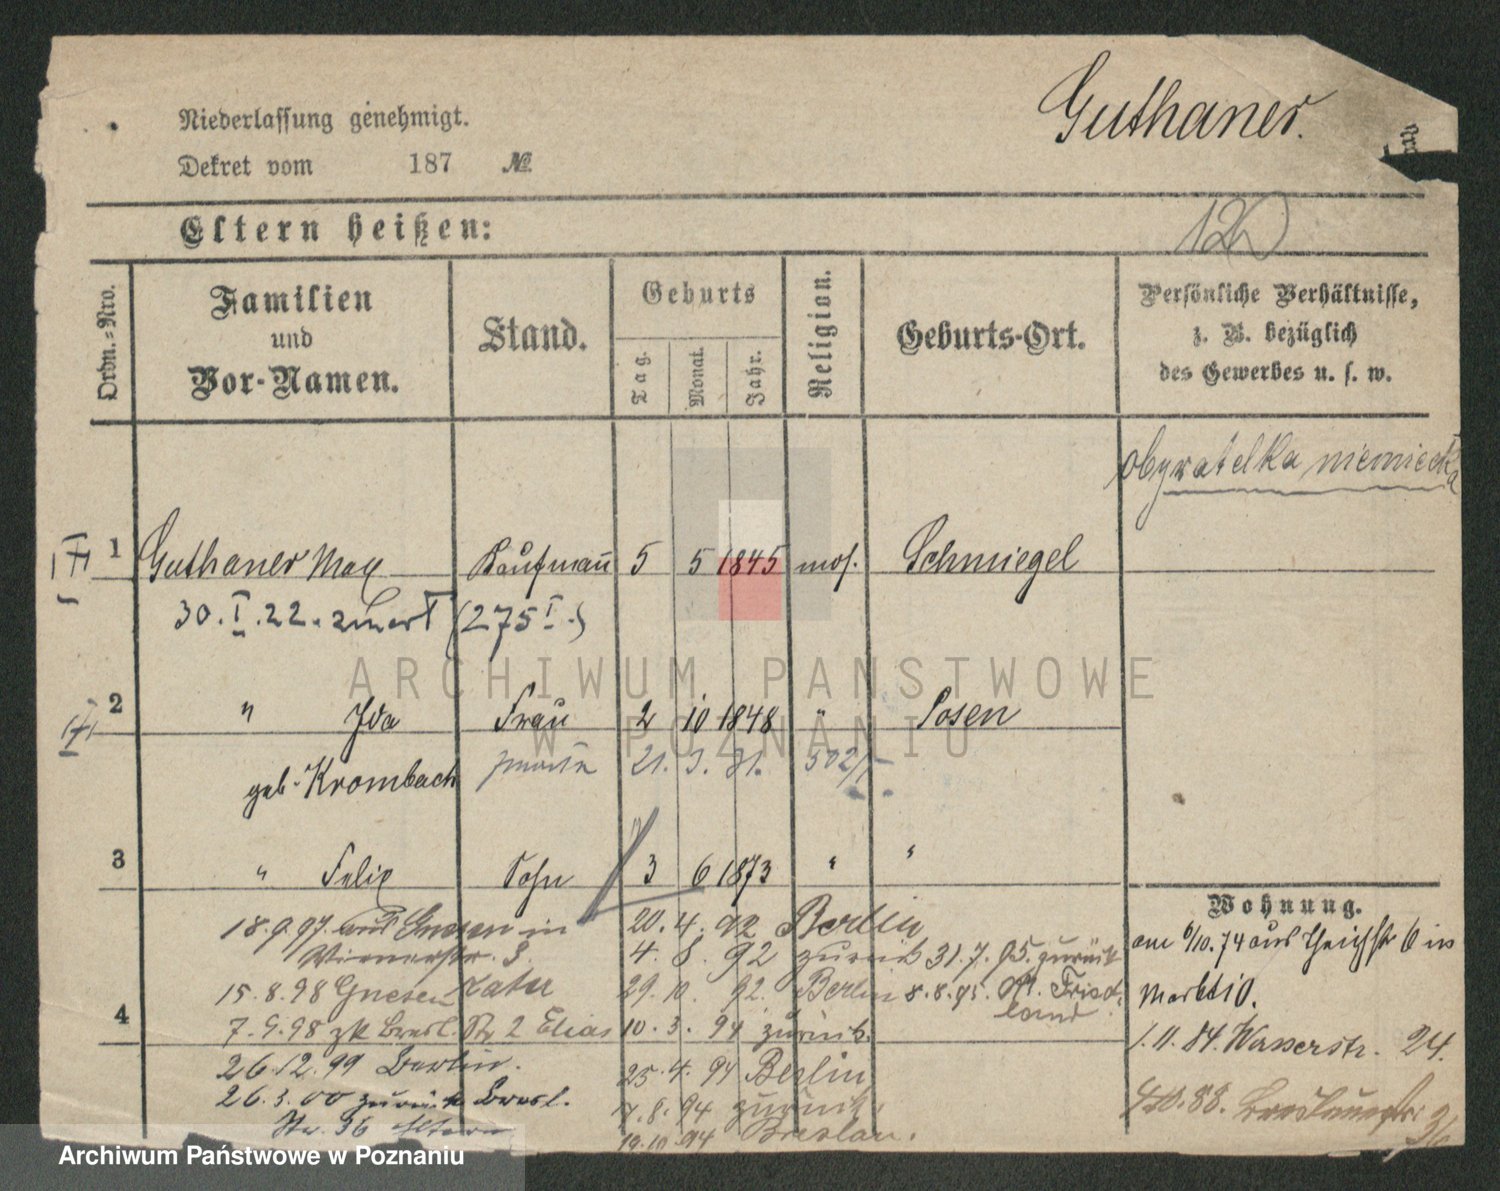 Niederlassung genehmigt.
Dekret vom 187 №
Guthaner.
Eltern heißen:
120
Ordn.-Nro.
Familien
und
Vor-Namen.
Stand.
Geburts
Tag.
Monat.
Jahr.
Religion.
Geburts-Ort.
Persönliche Verhältnisse,
z. B. bezüglich
des Gewerbes u. s. w.
obywatelka niemiecka
1 Guthaner Max Kaufmann 5 5 1845 mos. Schmiegel
30. I. 22. (275 I.)
2 " Ida Frau 2 10 1848 " Posen
geb. Krombach 21. 3. 31. 502/I
3 " Felix Sohn 3 6 1873 " "
Wohnung.
18.9.97. aus Gnesen in 20. 4. 92 Berlin
Wienerstr. 8. 4. 8. 92 zurück 31.7.95. zurück
15.8.98 Gnesen 29. 10. 92. Berlin 8.8.95. Friedland
4 7.9.98 zk Bresl. Str 2 Elias 10. 3. 94 zurück.
26.12.99 Berlin. 25. 4. 94 Berlin
26.3.00 zurück Bresl. 7. 8. 94 zurück.
Str. 36 Eltern 19.10.94 Breslau.
am 6/10.74 aus Teichstr 6 in
Markt 10.
1.11.84. Wasserstr. 24.
88. Breslauerstr. 36
ARCHIWUM PAŃSTWOWE
W POZNANIU
Archiwum Państwowe w Poznaniu